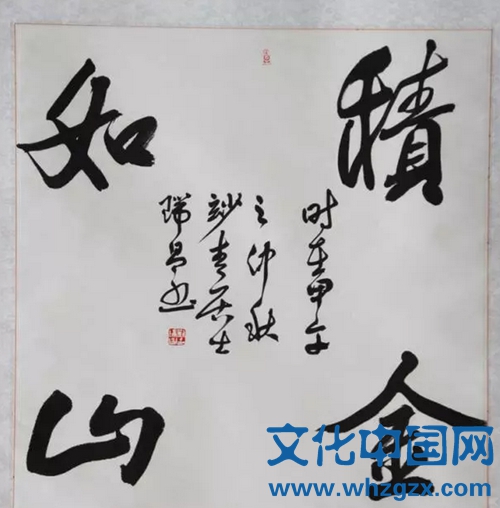 積金
如山
时在甲午
之仲秋
妙音居士
瑞昌书
文化中国网
www.whzgzx.com